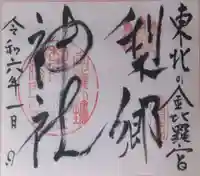 東北の金比羅宮
梨郷
神社
令和六年一月九日